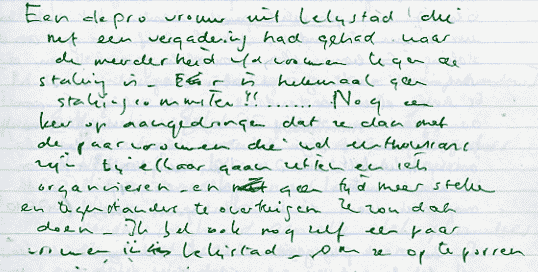 Een depro vrouw uit Lelystad die
net een vergadering had gehad waar
de meerderheid v/d vrouwen tegen de
staking is - Er is helemaal geen
stakingscommitee!!....... Nog een
keer op aangedrongen dat ze dan met
de paar vrouwen die wel enthousiast
zijn bij elkaar gaan zitten en iets
organiseren - en geen tijd meer steken
en tegenstanders te overtuigen. Ze zou dat
doen - Ik bel ook nog zelf een paar
vrouwen in Lelystad - om ze op te porren